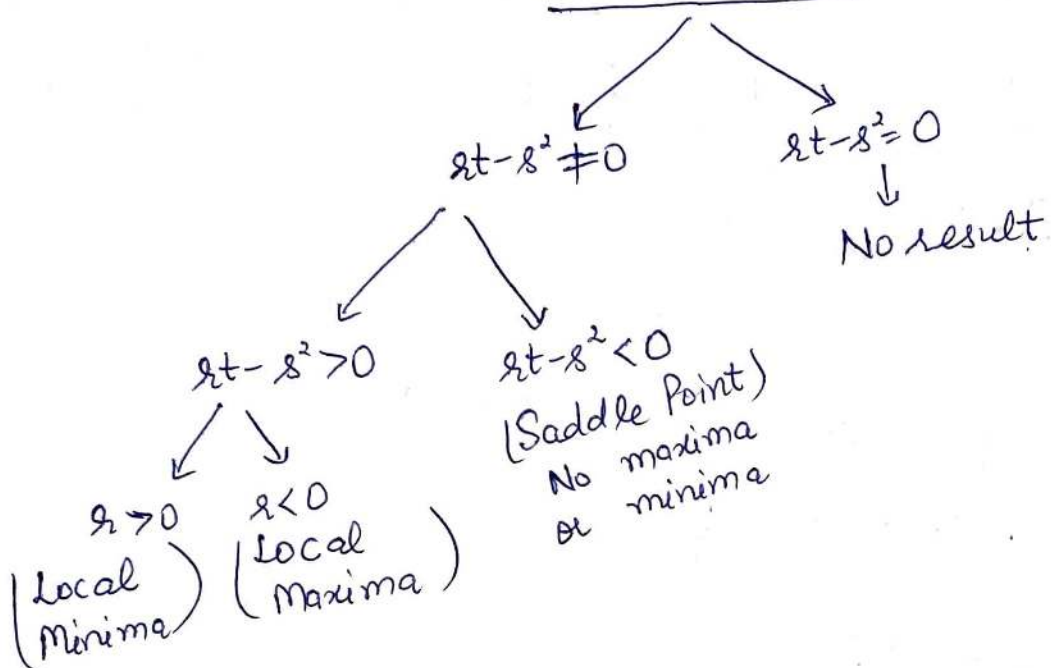 rt-s² ≠ 0
rt-s² = 0
No result
rt-s² > 0
rt-s² < 0
(Saddle Point)
No maxima
or minima
r > 0
r < 0
(Local
Minima)
(Local
Maxima)